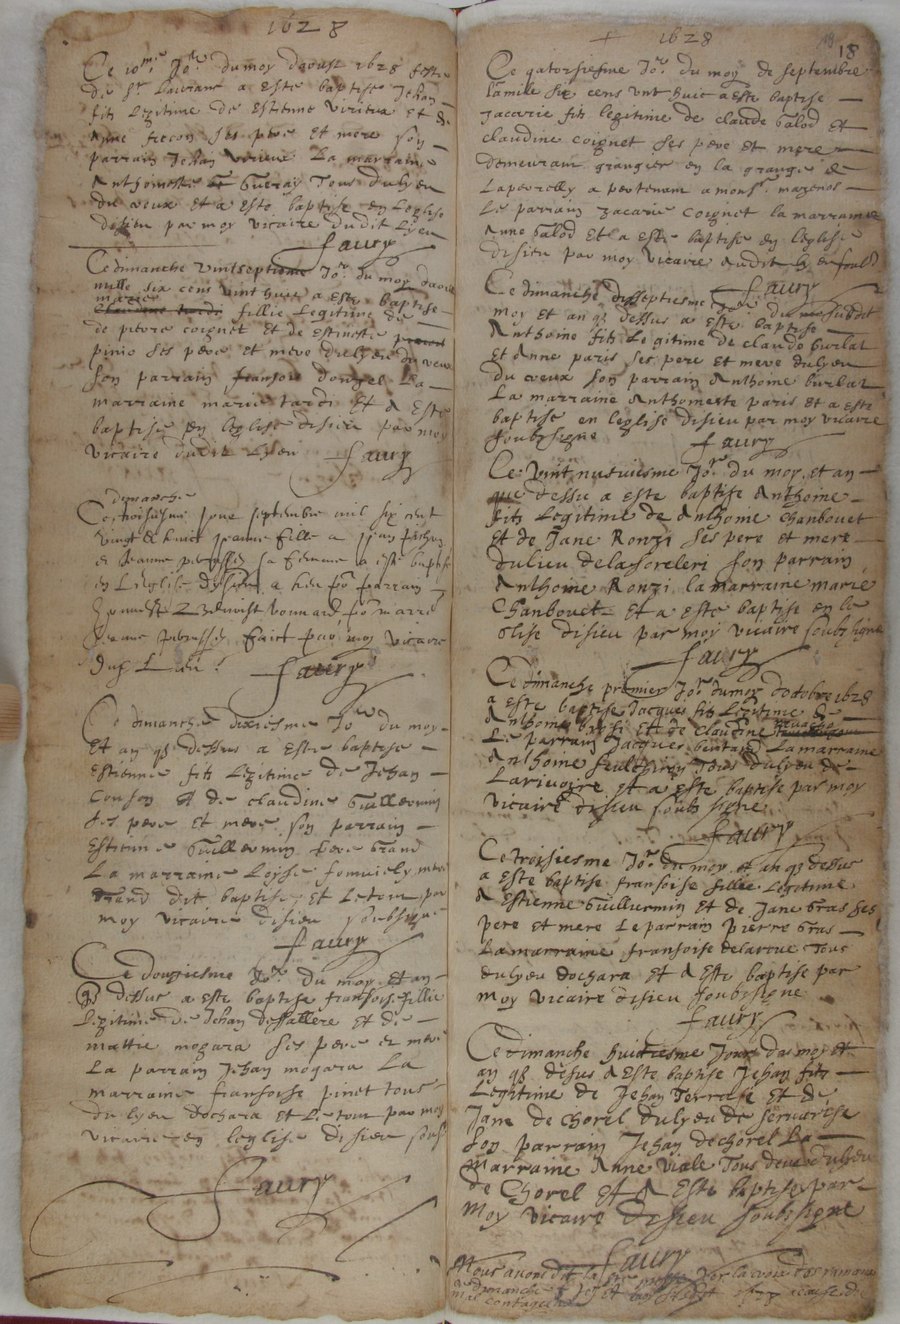 1628
Ce 10me Jor du moy daoust 1628 feste
de St Lauriant a este baptise Jehan
fils legitime de Estienne virieux et de
Anne ses pere et mere son
parrain Jehan virieux La marraine
Anthoinette Gueray Tous du lyeu
du creux et a este baptise en leglise
disieu par moy vicaire du dit Lyeu
faury
Ce dimanche vintseptieme Jor du moy daoust
mille six cens vint huit a este baptise
marie fillie legitime de
de pierre coignet et de estiennette
pinio ses pere et mere du lyeu du creux
son parrain fransois donzel La
marraine marie tardi Et a Este
baptise en leglise disieu par moy
vicaire du dit Lyeu faury
dimanche
Ce troisiesme jour septembre mil six cent
vingt et huict jeanne fille a
et jeanne sa femme a este baptise
en Leglise a heu por parrain
bonnard por marre
jeanne faict par moy vicaire
Lieu
faury
Ce dimanche dixiesme Jor du moy
Et an qs dessus a Este baptise
Estienne fils legitime de Jehan
Couson et de claudine Guillermin
ses pere et mere son parrain
Estienne Guillermin pere Grand
La marraine Loyse mere
Grand dit baptise et Le tout par
moy vicaire disieu soubsigne
faury
Ce dougiesme Jor du moy Et an
qs dessus a este baptise fransoise fillie
legitime de Jehan deffallere et de
mattie mogara ses pere et mere
La parrain Jehan mogara La
marraine fransoise pinet tous
du lyeu dochara et Le tout par moy
vicaire en leglise disieu soubs
faury
1628
18
Ce qatorsiesme Jor du moy de septembre
Lamille six cens vint huic a este baptise
zacarie fils legitime de claude balod et
claudine coignet ses pere et mere
demeurant grangier en la grange de
Laperolly apertenant a monsr mazenod
Le parrain zacarie coignet la marraine
Anne balod Et a este baptise en leglise
disieu par moy vicaire du dit
faury
Ce dimanche disseptiesme Jor du susdit
moy et an qs dessus a este baptise
Anthoine fils Legitime de claude burlat
Et Anne paris ses pere et mere du lyeu
du creux son parrain Anthoine burlat
La marraine Anthomerte paris et a este
baptise en leglise disieu par moy vicaire
soubsigne faury
Ce vint nuviesme Jor du moy et an
que dessus a este baptise Anthoine
fils Legitime de Anthoine Chanbouet
Et de Jane Ronzi ses pere et mere
du lieu delasorelleri son parrain
Anthoine Ronzi la marraine marie
Chanbouet Et a este baptise en le
glise disieu par moy vicaire soubsigne
faury
Ce dimanche premier Jor du moy doctobre 1628
a este baptise Jacques fils Legitime de
Anthoine Et de Claudine
Le parrain Jacques La marraine
Anthoine Tous du lyeu de
Larivoire et a este baptise par moy
vicaire disieu soubsigne
faury
Ce troisiesme Jor du moy et an qs dessus
a este baptise fransoise fillie Legitime
A Estienne Guillermin Et de Jane Gras ses
pere et mere Le parrain pierre Gras
La marraine fransoise delarue Tous
du lyeu dochara Et A Este baptise par
moy vicaire disieu soubsigne
faury
Ce dimanche huictiesme Jour du moy et
an qs desus A Este baptise Jehan fils
Legitime de Jehan Terrasse Et de
Jane de Chorel du lyeu de servarese
Son parrain Jehan dechorel La
Marraine Anne viale Tous deux du lyeu
de Chorel et A Este baptise par
moy vicaire disieu soubsigne
faury
Nous avons dit la messe vers la croix des ramaux
dimanche a cause du
mal contagieux